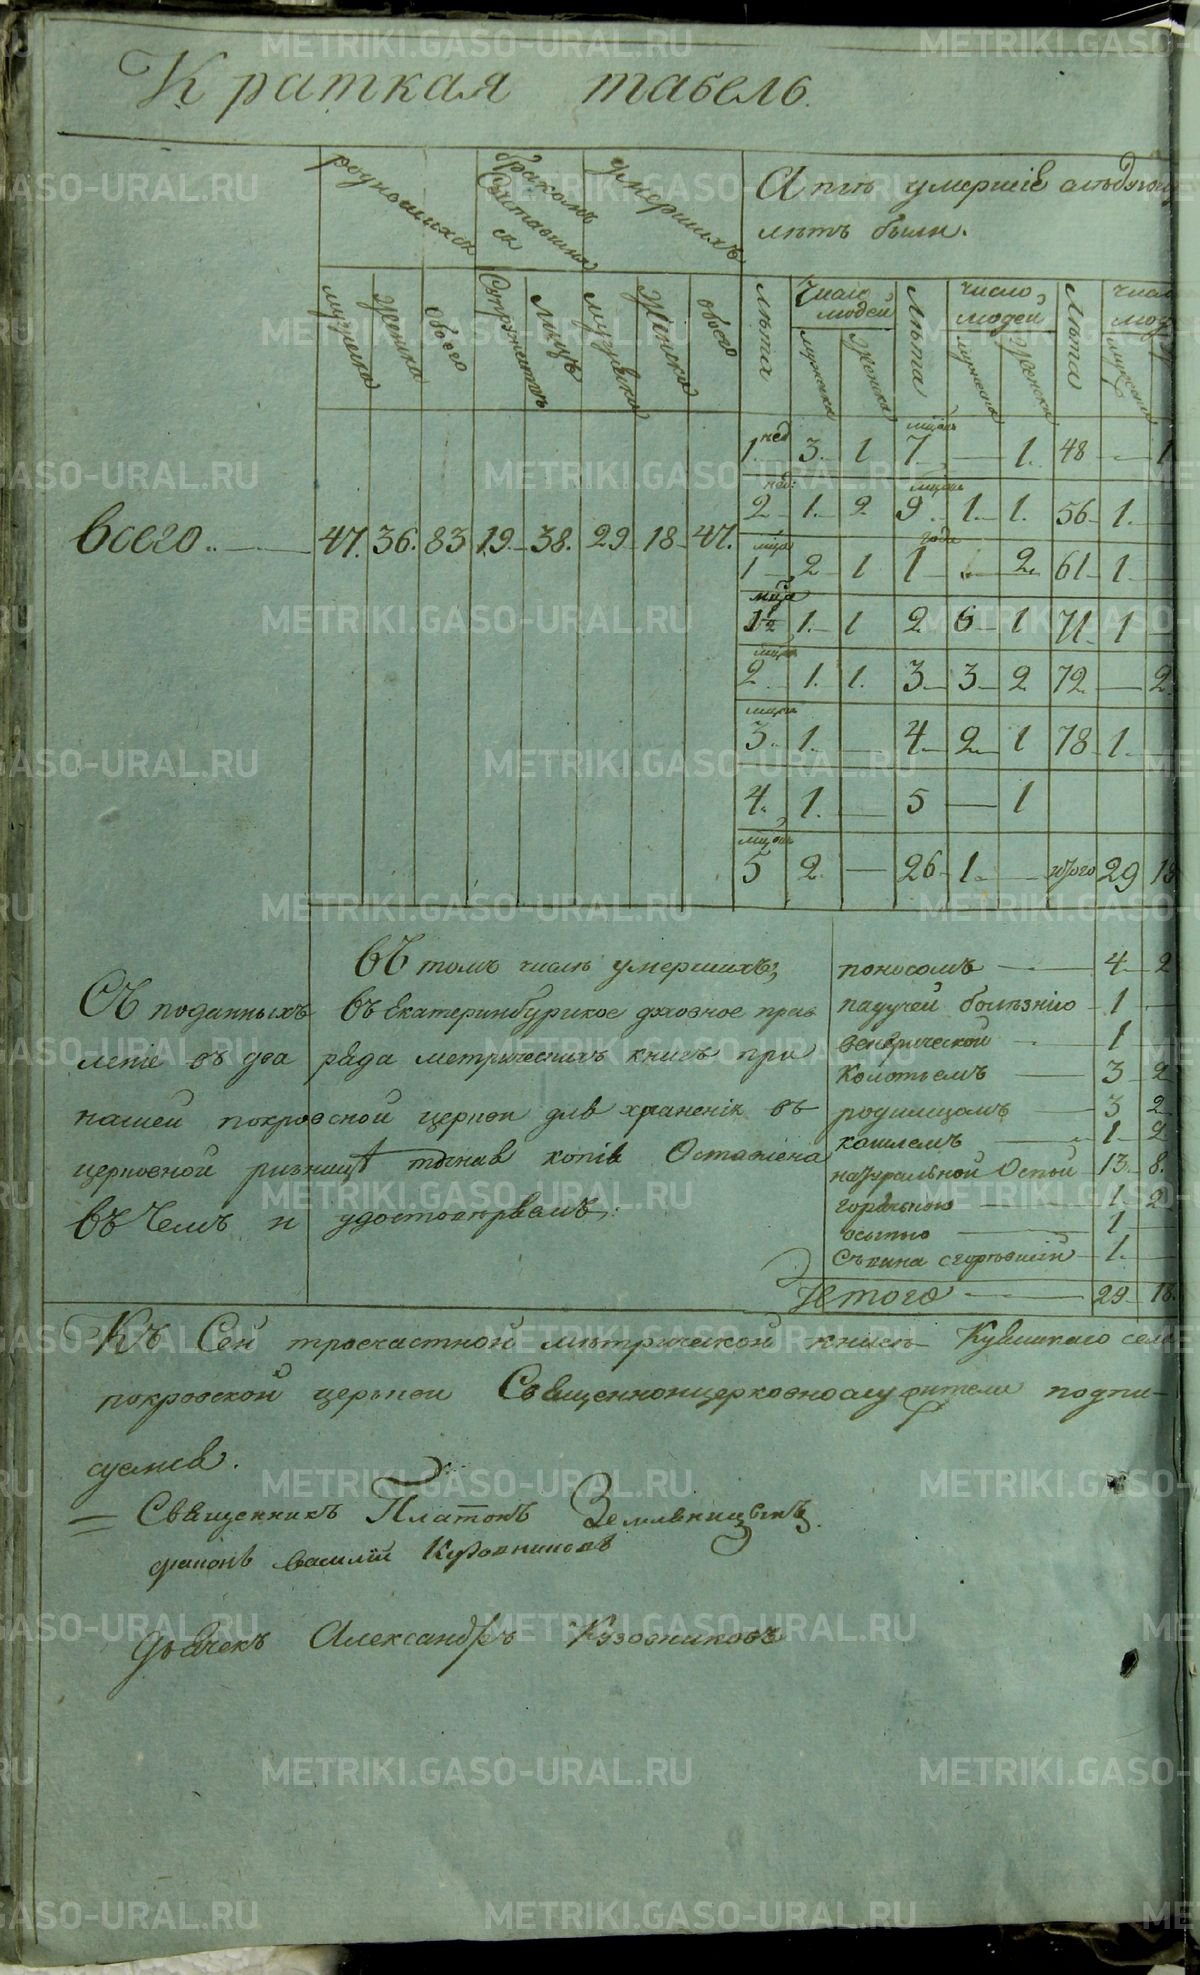 Краткая табель.
родившихся
бракомъ Сочетавшихся
умершихъ
А
умершіе
лѣтъ были.
мужеска
женска
обоего
Супружествъ
Лицъ
мужеска
Женска
обоего
лѣта
Число людей
лѣта
число людей
Лѣта
мужеска
Женска
мужеска
Женска
мужеска
1. нед 3. 1 7 — 1. 48 — 1
2 нед: 1. 2 9 1. 1. 56 1. —
всего. 47. 36. 83 19 38. 29 18 47.
1 2 1 1 года — 2. 61 1 —
1½ 1. 1 2 6 1 71 1 —
2 1. 1. 3 3 2 72 — 2
3. 1. — 4 2 1 78 1. —
4. 1. — 5 — 1
5 2. — 26 1. — итого 29 18
въ томъ числѣ умершихъ;
поносомъ — 4 2
Съ поданныхъ въ Екатеринбургское духовное прав
падучей болѣзнію 1 —
леніе въ два ряда метрическихъ книгъ при
венерической 1
Колотьемъ — 3 2
нашей покровской церкви для храненія въ
родимцомъ — 3 2
кашлемъ — 1 2
церковной ризницѣ копія Оставлена
натуральной Оспой 13 8.
горячкою — 1 2
въ Чемъ и удостовѣряемъ,:
осыпью — 1 —
сгорѣвшій 1. —
Итого — 29 18.
Къ Сей троечастной метрической книгѣ села
покровской церкви Священноицерковнослужители подпи-
суемся.
Священникъ Платонъ Земляницынъ.
диаконъ василій Кузовниковъ
Дьячекъ Александръ Кузовниковъ
METRIKI.GASO-URAL.RU